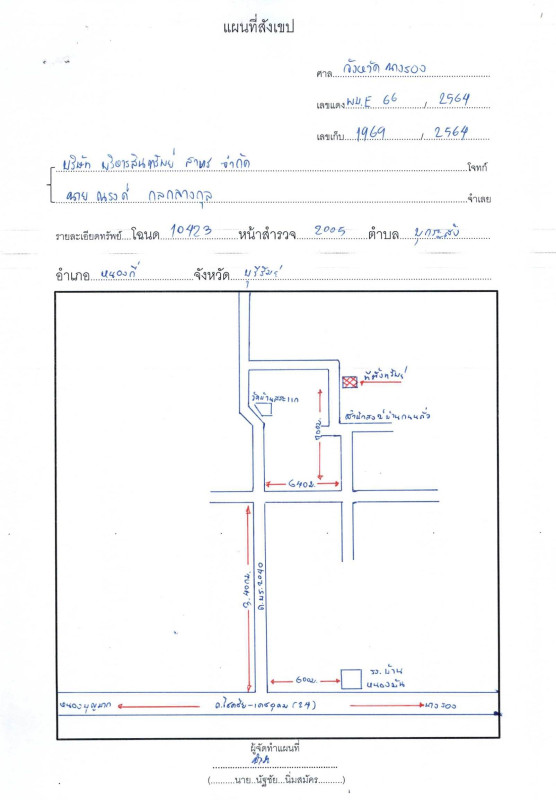 แผนที่สังเขป
ศาล จังหวัดนางรอง
เลขแดง ผบ.E 66 , 2564
เลขเก็บ 1969 , 2564
บริษัท บริหารสินทรัพย์ สาทร จำกัด โจทก์
นาย ณรงค์ กลกลางกุล จำเลย
รายละเอียดทรัพย์ โฉนด 10423 หน้าสำรวจ 2005 ตำบล บุกระสัง
อำเภอ หนองกี่ จังหวัด บุรีรัมย์
ที่ตั้งทรัพย์
วัดบ้านสระแก
640ม.
ถ.บร.2040
600ม.
รร.บ้าน
หนองมัน
หนองบุญมาก
ถ.โชคชัย-เดชอุดม (24)
นางรอง
ผู้จัดทำแผนที่
(..........นาย..ณัฐชัย...นิ่มสมัคร..........)